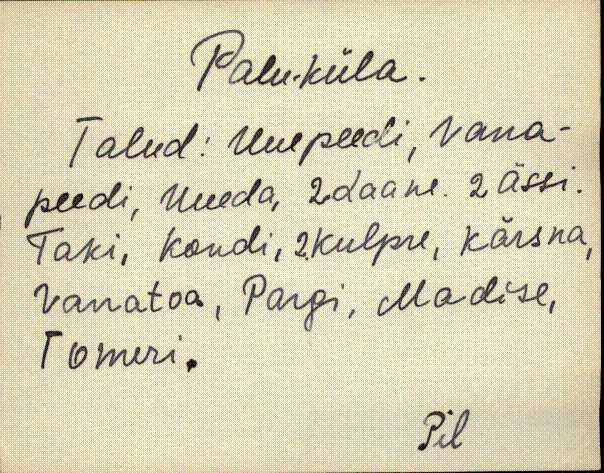 Palu-küla.
Talud: Uuepeedi, Vana-
peedi, Uueda, 2 Laane. 2 Ässi.
Taki, Kondi, 2 Kulpre, Kärsna,
Vanatoa, Pargi, Madise,
Tomeri.
Pil